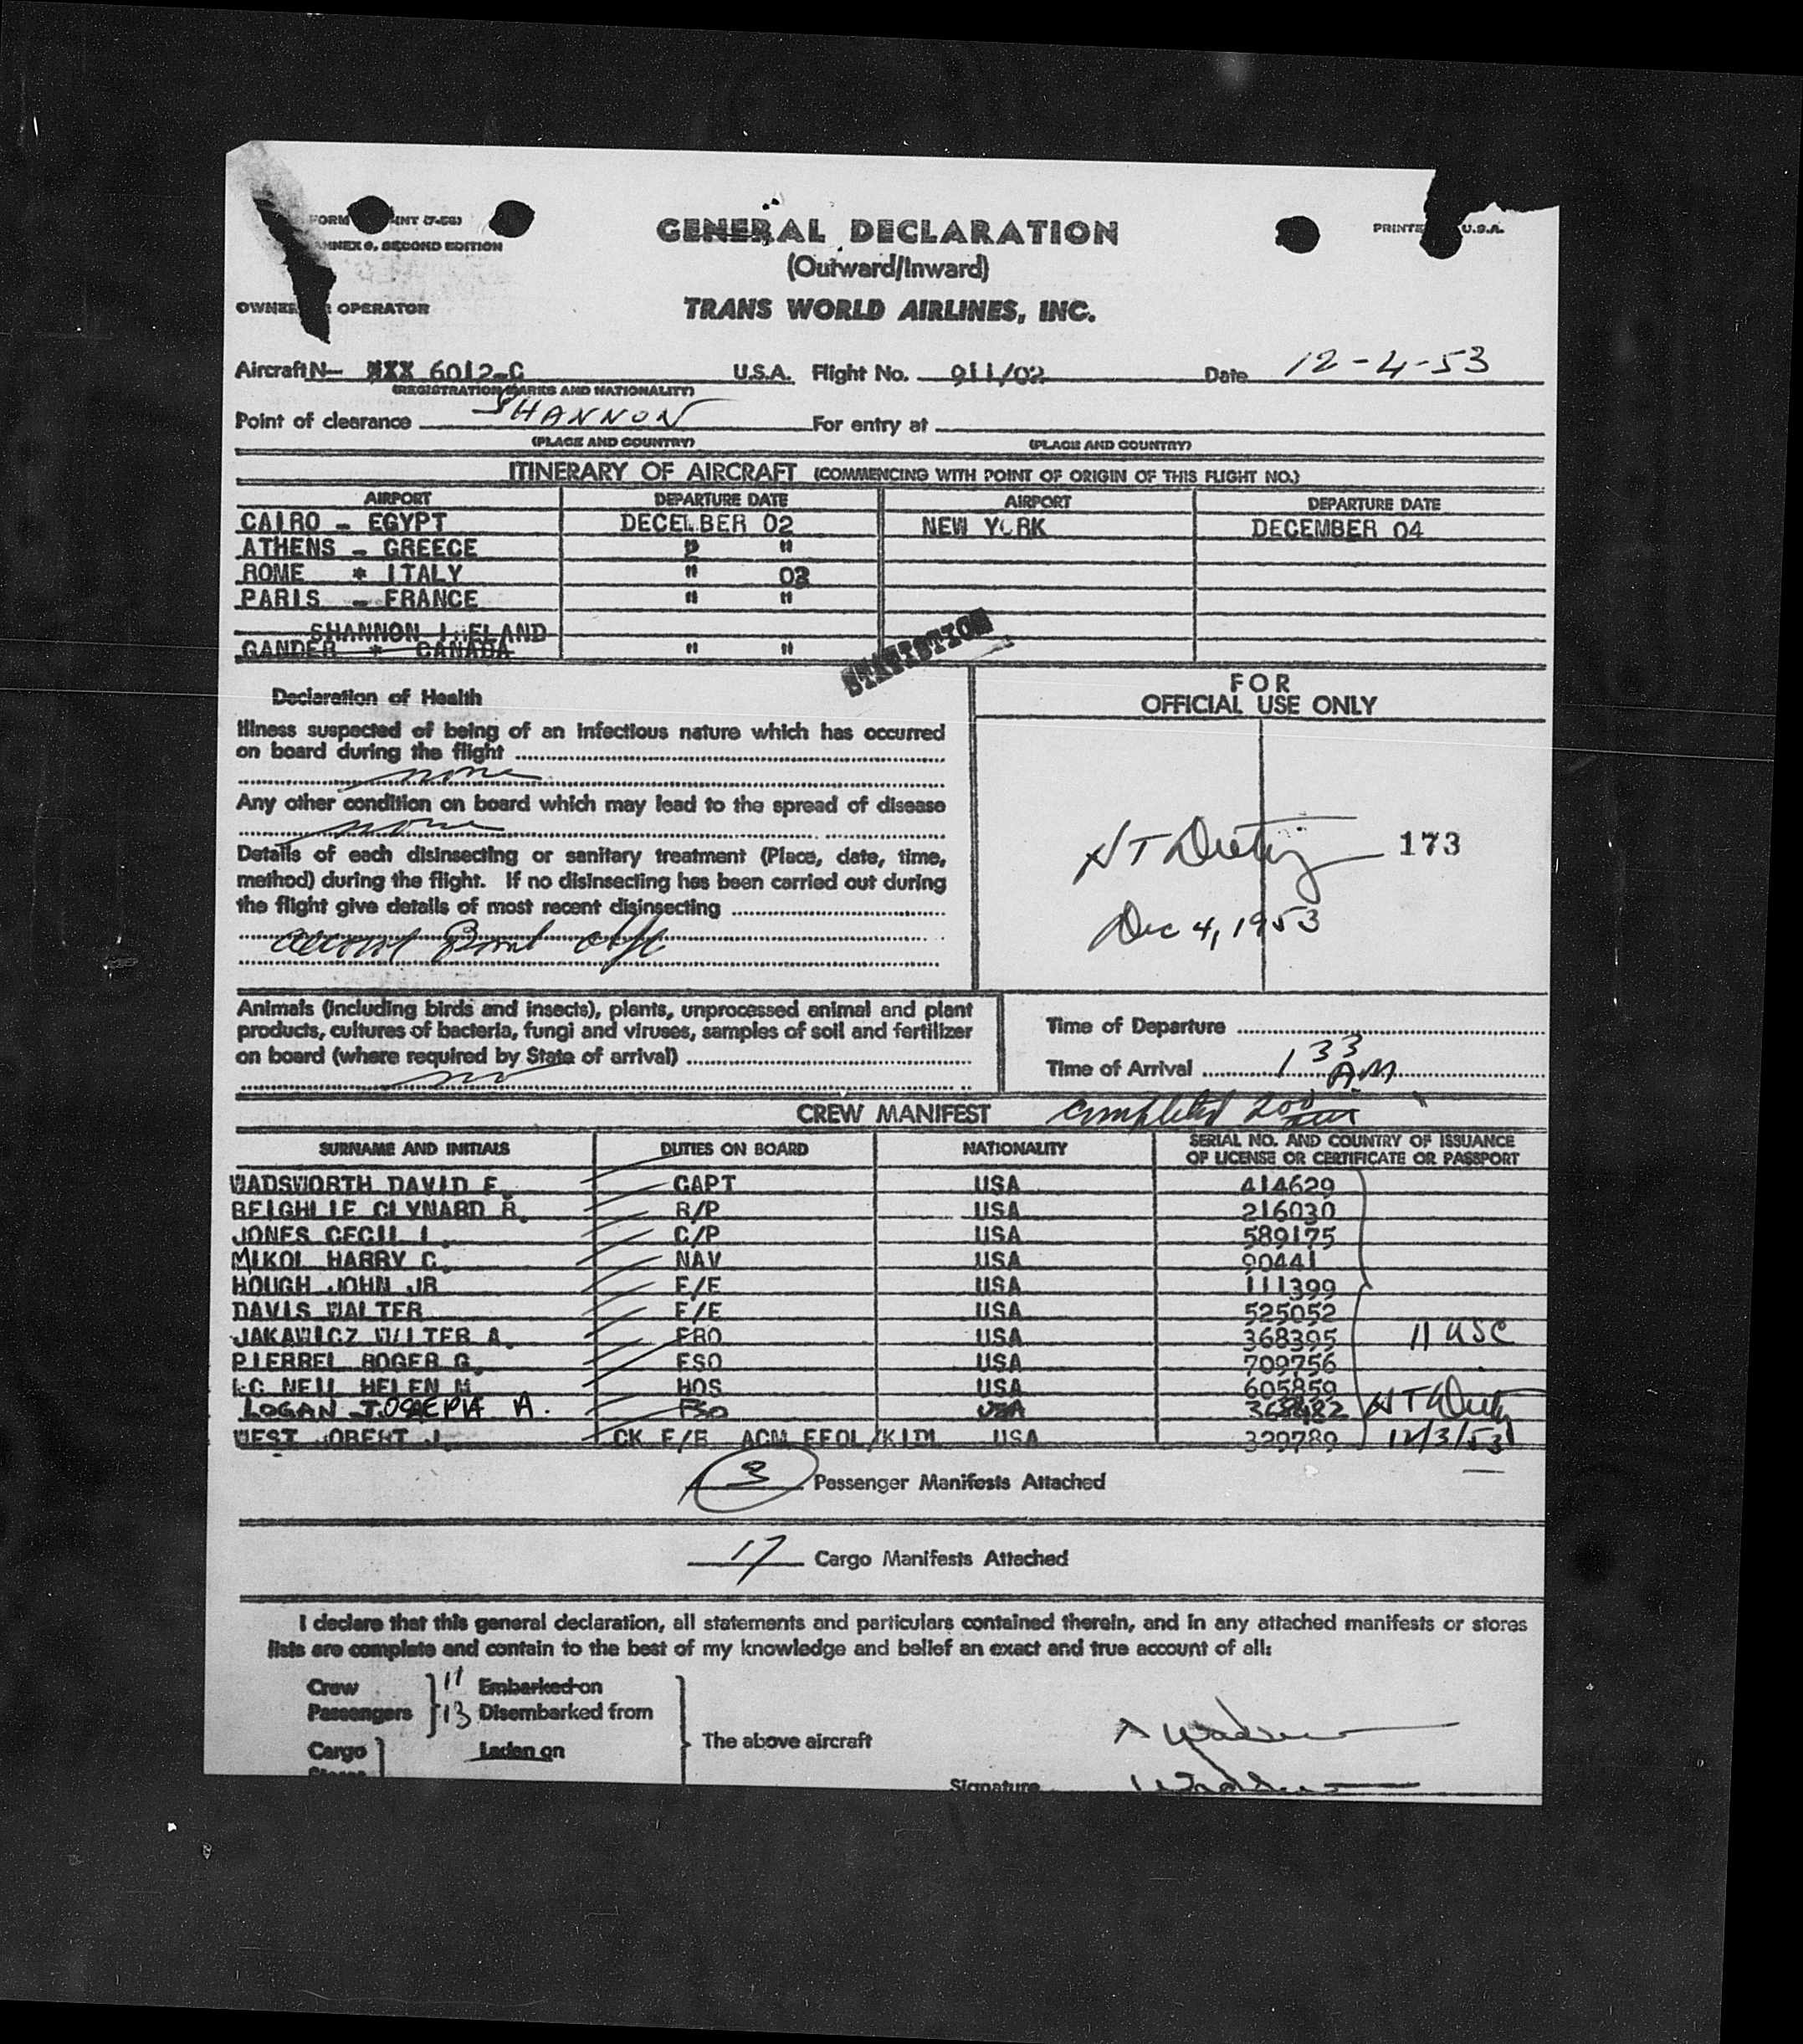 FORM INT (7-53)
ANNEX 9, SECOND EDITION
PRINTE U.S.A.
GENERAL DECLARATION
(Outward/Inward)
OWNER OPERATOR
TRANS WORLD AIRLINES, INC.
Aircraft N- XXX 6012-C U.S.A. Flight No. 911/02 Date 12-4-53
(REGISTRATION MARKS AND NATIONALITY)
Point of clearance SHANNON For entry at
(PLACE AND COUNTRY) (PLACE AND COUNTRY)
ITINERARY OF AIRCRAFT (COMMENCING WITH POINT OF ORIGIN OF THIS FLIGHT NO.)
AIRPORT DEPARTURE DATE AIRPORT DEPARTURE DATE
CAIRO - EGYPT DECEMBER 02 NEW YORK DECEMBER 04
ATHENS - GREECE " "
ROME * ITALY " 03
PARIS - FRANCE " "
SHANNON IRELAND
GANDER * CANADA " "
STATISTICS
Declaration of Health
FOR
OFFICIAL USE ONLY
Illness suspected of being of an infectious nature which has occurred
on board during the flight
none
Any other condition on board which may lead to the spread of disease
none
Details of each disinsecting or sanitary treatment (Place, date, time,
method) during the flight. If no disinsecting has been carried out during
the flight give details of most recent disinsecting
Aerosol Bomb
173
Dec 4, 1953
Animals (including birds and insects), plants, unprocessed animal and plant
products, cultures of bacteria, fungi and viruses, samples of soil and fertilizer
on board (where required by State of arrival)
no
Time of Departure
Time of Arrival 1 33 A.M
CREW MANIFEST completed 200
SURNAME AND INITIALS DUTIES ON BOARD NATIONALITY SERIAL NO. AND COUNTRY OF ISSUANCE
OF LICENSE OR CERTIFICATE OR PASSPORT
WADSWORTH DAVID E. CAPT USA 414629
BEIGHLIE CLYNARD R. R/P USA 216030
JONES CECIL L. C/P USA 589175
MIKOL HARRY C. NAV USA 90441
HOUGH JOHN JR F/E USA 111399
DAVIS WALTER F/E USA 525052
JAKAWICZ WLTER A. FRO USA 368395 11 USC
PIERREL ROGER G. FSO USA 709756
MC NEIL HELEN M HOS USA 605859
LOGAN JOSEPH A. FSO USA 368482
WEST ROBERT J. CK F/E ACM EFOL/KIDL USA 329789 12/3/53
3 Passenger Manifests Attached
17 Cargo Manifests Attached
I declare that this general declaration, all statements and particulars contained therein, and in any attached manifests or stores
lists are complete and contain to the best of my knowledge and belief an exact and true account of all:
Crew 11 Embarked on
Passengers 13 Disembarked from
The above aircraft
Cargo Laden on
Stores
Signature